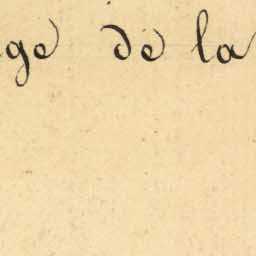 ge de la